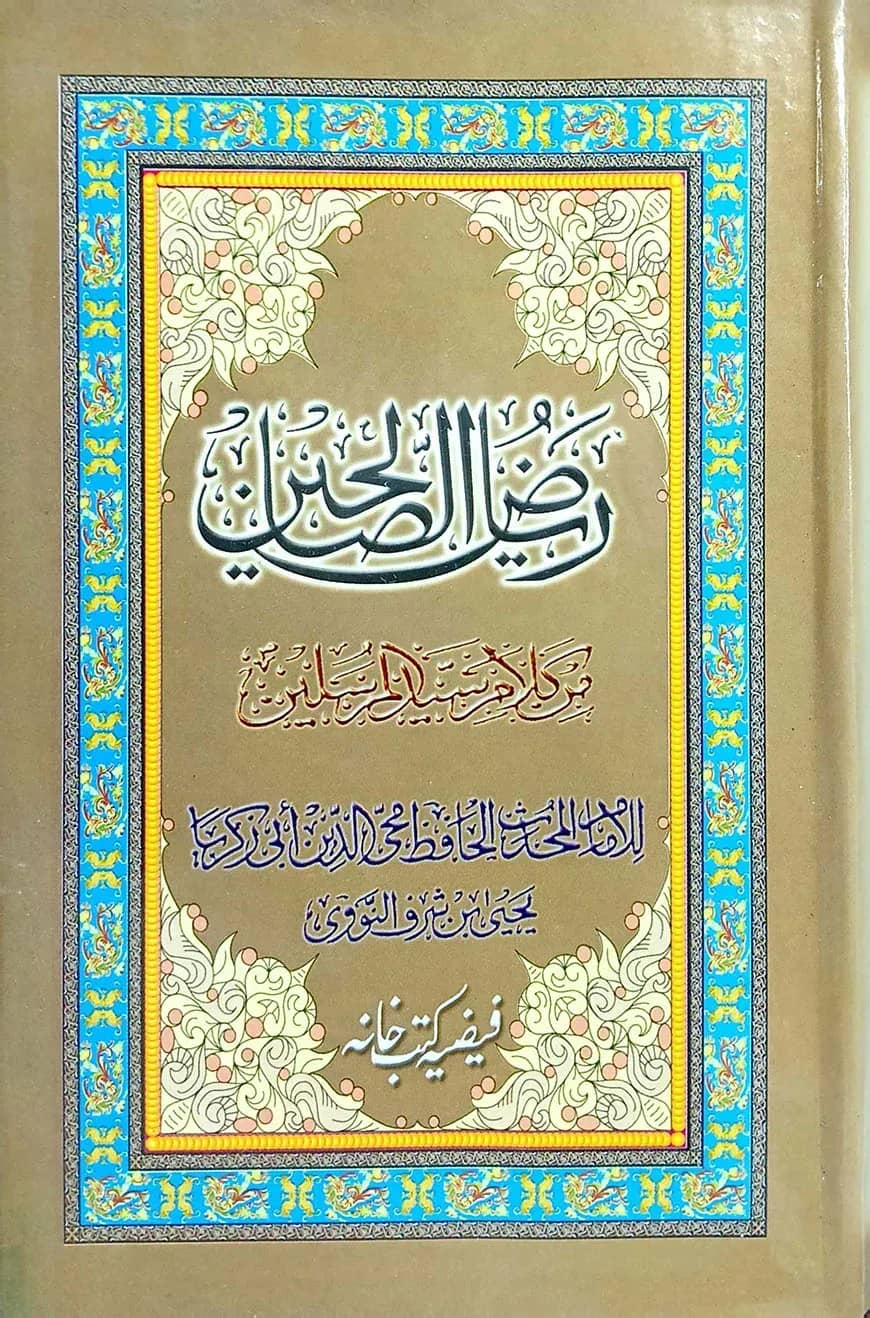 رياض الصالحين
من كلام سيد المرسلين
للامام المحدث الحافظ محي الدين أبى زكريا
يحيى ابن شرف النووى
فيضيه كتب خانه